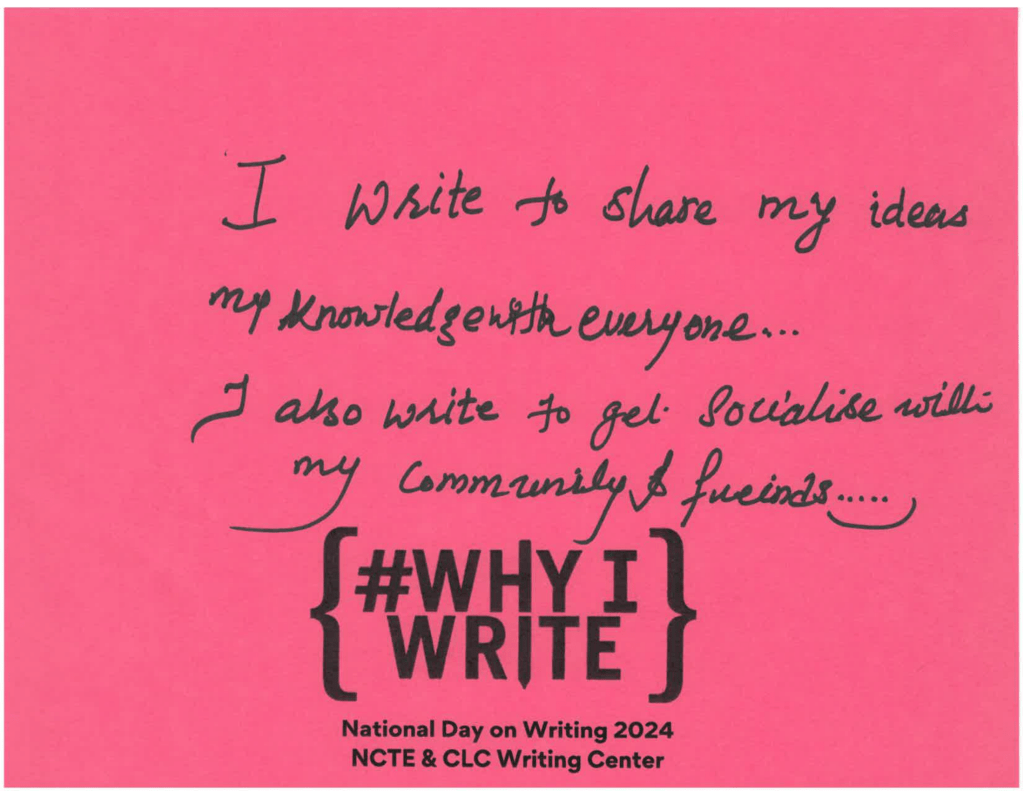 I write to share my ideas
my knowledge with everyone...
I also write to get socialise with
my community & freinds.....
{#WHY I
WRITE}
National Day on Writing 2024
NCTE & CLC Writing Center